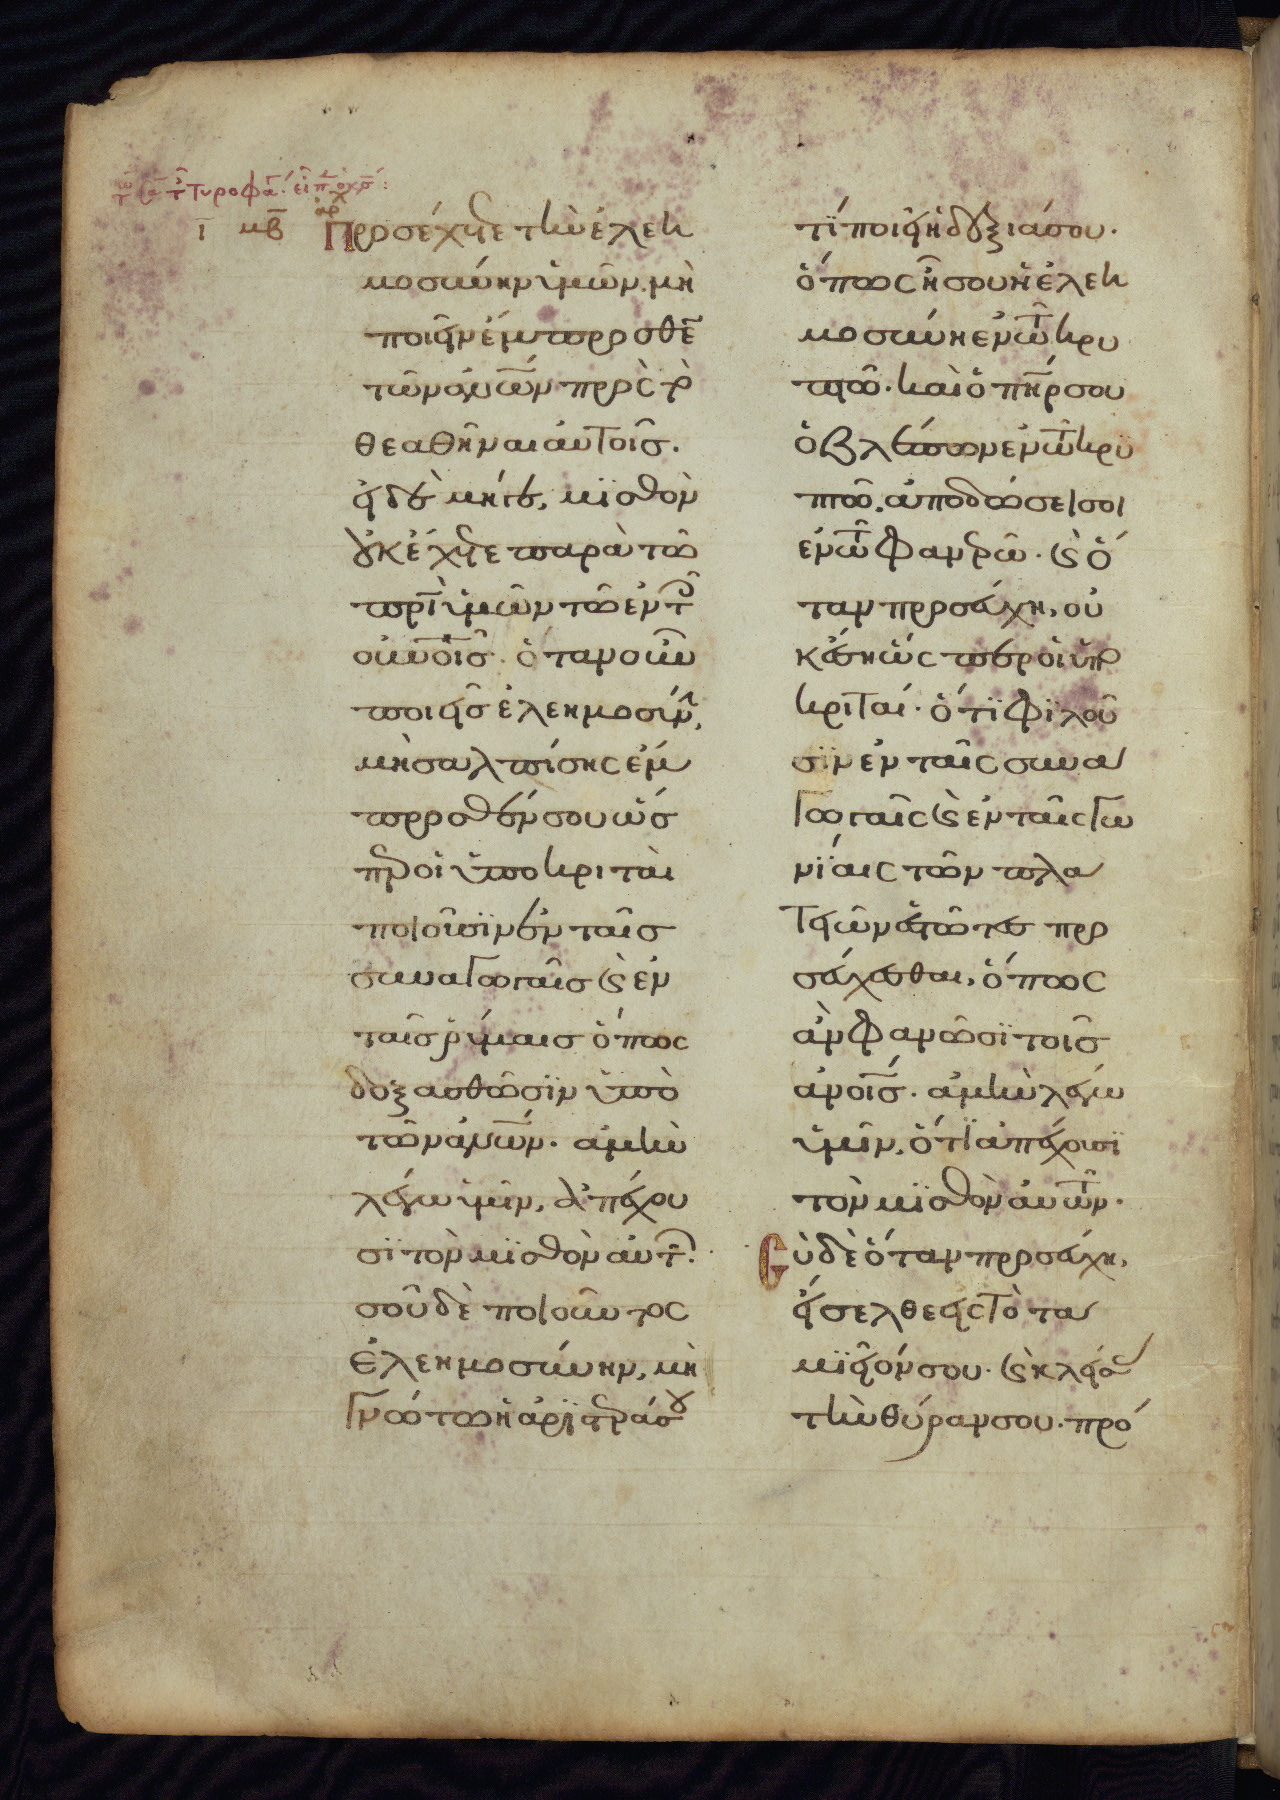 τυροφα
ι μβ Προσέχετε τὴν ἐλεη
μοσύνην ὑμῶν. μὴ
ποιεῖν ἔμπροσθε̅
τῶν ἀνῶν πρὸς τὸ
θεαθῆναι αὐτοῖς.
εἰ δὲ μήγε, μϊσθὸν
οὐκ ἔχετε παρὰ τῶ
πρὶ ὑμῶν τῶ ἐν τοῖ
οὐνοῖς. ὅταν οὖν
ποιεῖς ἐλεημοσύνην,
μὴ σαλπίσης ἔμ
προσθέν σου ὥσ
περ οἱ ὑποκριταὶ
ποιοῦσϊν ἐν ταῖς
συναγωγαῖς καὶ ἐν
ταῖς ρύμαις ὅπως
δοξασθῶσϊν ὑπὸ
τῶν ἀνῶν. ἀμὴν
λέγω ὑμῖν, ἀπέχου
σϊ τὸν μϊσθὸν αὐτῶν.
σοῦ δὲ ποιοῦντος
ἐλεημοσύνην, μὴ
γνώτω ἡ ἀρϊστερά σου
τί ποιεῖ ἡ δεξιά σου.
ὅπως ἦ σου ἡ ἐλεη
μοσύνη ἐν τῶ κρυ
πτῶ. καὶ ὁ πηρ σου
ὁ βλέπων ἐν τῶ κρυ
πτῶ, ἀποδώσει σοι
ἐν τῶ φανερῶ. καὶ ὅ
ταν προσεύχη, οὐ
κ ἔση ὥς περ οἱ ὑπο
κριταί. ὅτϊ φϊλοῦ
σϊν ἐν ταῖς συνα
γωγαῖς καὶ ἐν ταῖς γω
νίαις τῶν πλα
τειῶν ἑστῶτες προ
σεύχεσθαι, ὅπως
ἂν φανῶσϊ τοῖς
ἀνοις. ἀμὴν λέγω
ὑμῖν, ὅτϊ ἀπέχουσϊ
τὸν μϊσθὸν αὐτῶν.
Σὺ δὲ ὅταν προσεύχη,
εἴσελθε εἰς τὸ τα
μϊεῖόν σου. καὶ κλείσας
τὴν θύραν σου. πρό